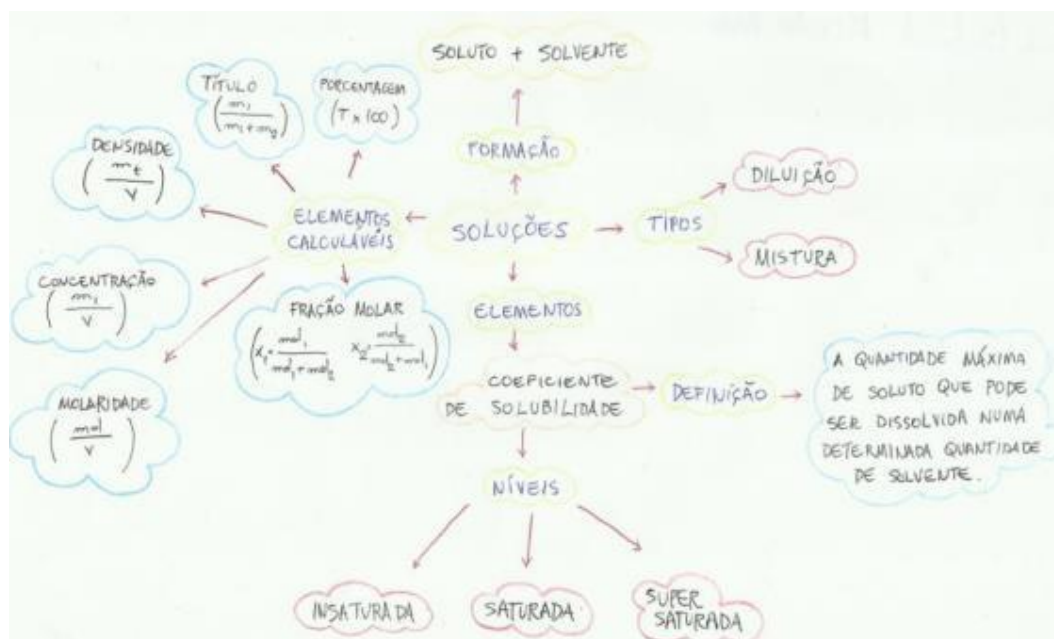 SOLUTO + SOLVENTE
FORMAÇÃO
SOLUÇÕES
TIPOS
DILUIÇÃO
MISTURA
ELEMENTOS
CALCULÁVEIS
PORCENTAGEM
(T x 100)
TÍTULO
(m₁ / m₁ + m₂)
DENSIDADE
(mt / V)
CONCENTRAÇÃO
(m₁ / V)
MOLARIDADE
(mol / V)
FRAÇÃO MOLAR
(X₁ = mol₁ / mol₁ + mol₂ X₂ = mol₂ / mol₂ + mol₁)
ELEMENTOS
COEFICIENTE
DE SOLUBILIDADE
DEFINIÇÃO
A QUANTIDADE MÁXIMA
DE SOLUTO QUE PODE
SER DISSOLVIDA NUMA
DETERMINADA QUANTIDADE
DE SOLVENTE.
NÍVEIS
INSATURADA
SATURADA
SUPER
SATURADA